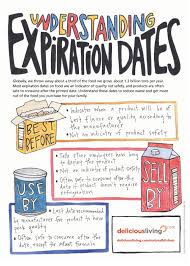 UNDERSTANDING
EXPIRATION DATES
Globally, we throw away about a third of the food we grow, about 1.3 billion tons per year.
Most expiration dates on food are an indicator of quality not safety, and products are often
safe to consume after the printed date. Understand these dates to reduce waste and get more
out of the food you purchase for your family.
BEST
BEFORE
• Indicates when a product will be of
best flavor or quality according to
the manufacturer
• Not an indicator of product safety
• Tells store employees how long to
display the product
• Not an indicator of product safety
• Often safe to consume after the
date if product doesn't require
refrigeration
SELL
BY
USE
BY
• Last date recommended
by manufacturer for product to have
peak quality
• Often safe to consume after the
date, except for infant formula
deliciousliving